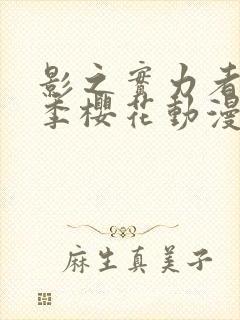 影之實力者
季櫻花動漫
麻生真美子